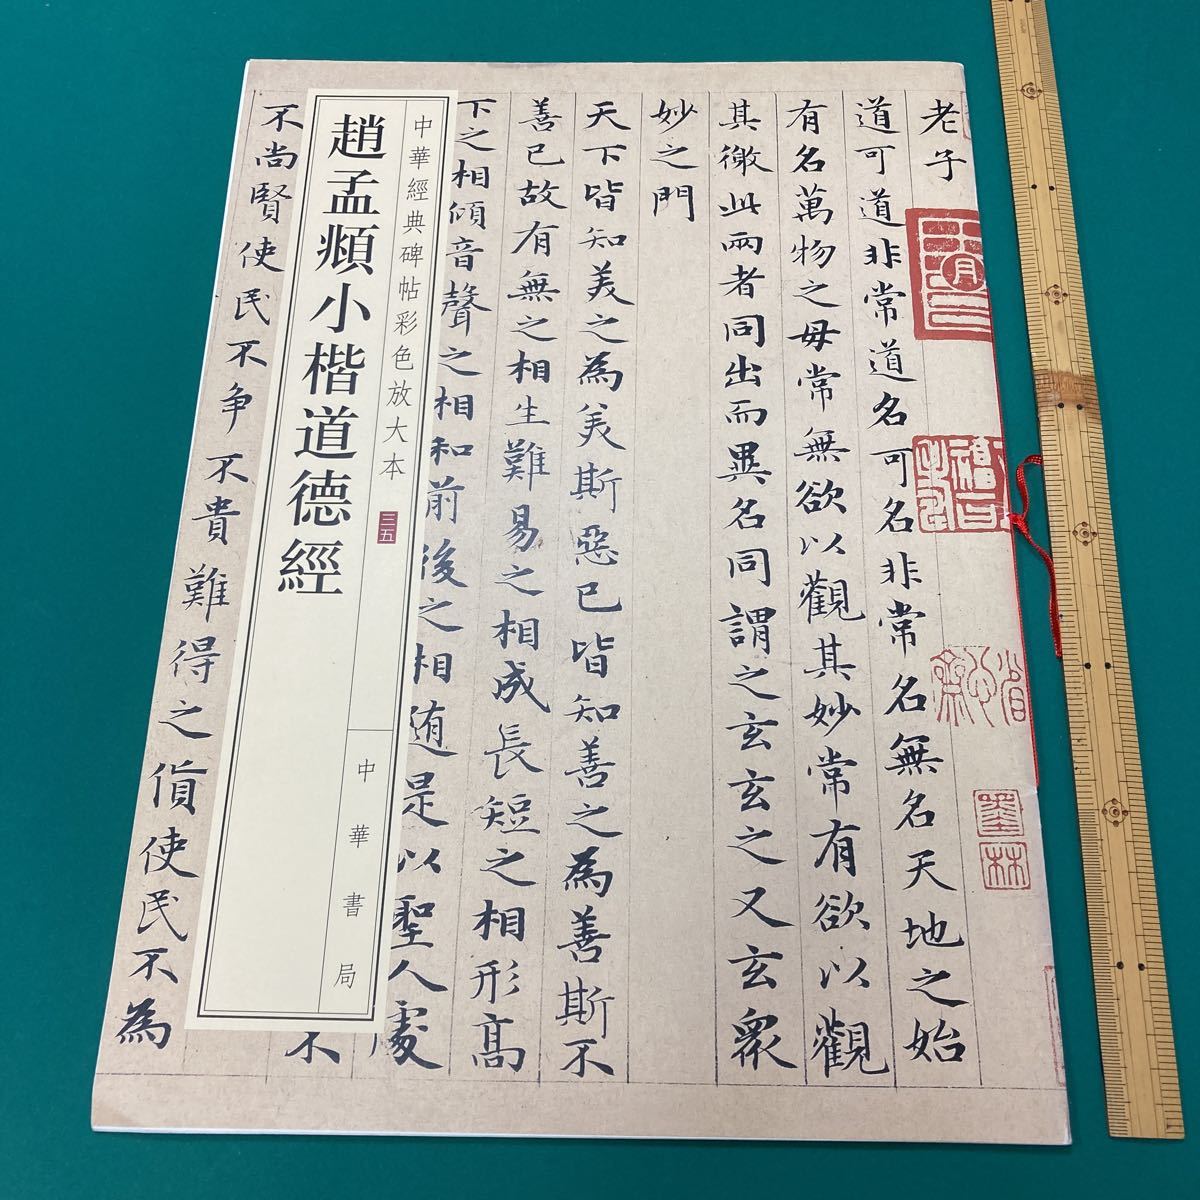 老子
道可道非常道名可名非常名無名天地之始
有名萬物之毋常無欲以觀其妙常有欲以觀
其徼此兩者同出而異名同謂之玄玄之又玄衆
妙之門
天下皆知美之為美斯惡已皆知善之為善斯不
善已故有無之相生難易之相成長短之相形高
下之相傾音聲之相和前後之相随是以聖人處
不
不尚賢使民不争不貴難得之貨使民不為
中華經典碑帖彩色放大本
三五
趙孟頫小楷道德經
中華書局
墨林